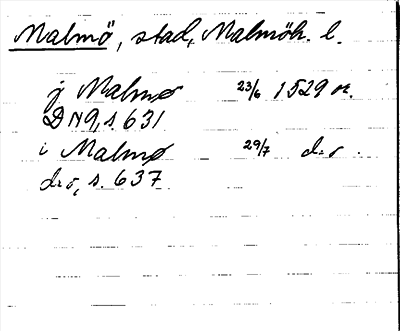 Malmö, stad, Malmöh. l.
j Malmø 23/6 1529 or.
DN9, s. 631
i Malmø 29/7 d:o .
d:o, s. 637